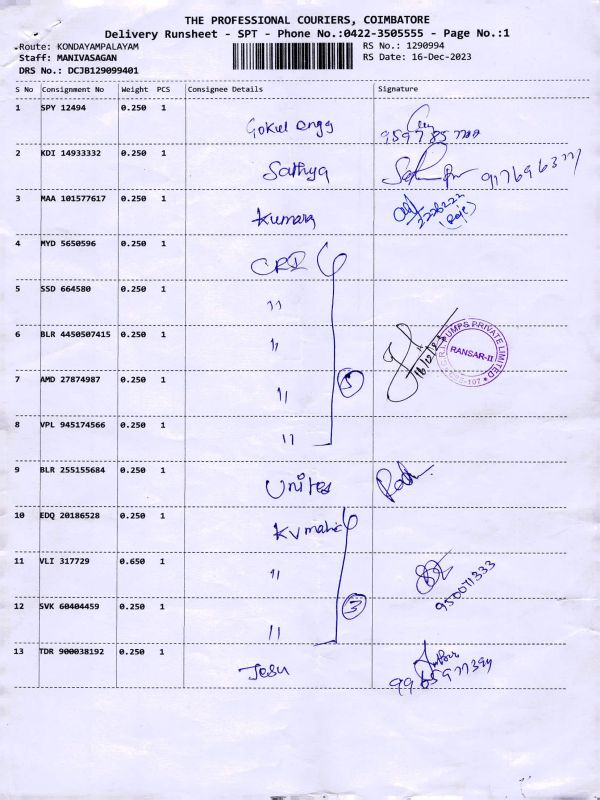 THE PROFESSIONAL COURIERS, COIMBATORE
Delivery Runsheet - SPT - Phone No.:0422-3505555 - Page No.:1
Route: KONDAYAMPALAYAM RS No.: 1290994
Staff: MANIVASAGAN RS Date: 16-Dec-2023
DRS No.: DCJB129099401
S No Consignment No Weight PCS Consignee Details Signature
1 SPY 12494 0.250 1 Gokul engg
2 KDI 14933332 0.250 1 Sathya
3 MAA 101577617 0.250 1 Kumara
4 MYD 5650596 0.250 1 CRI
5 SSD 664580 0.250 1 "
6 BLR 4450507415 0.250 1 " 16/12/23 PUMPS PRIVATE LIMITED RANSAR-II
7 AMD 27874987 0.250 1 " 5
8 VPL 945174566 0.250 1 "
9 BLR 255155684 0.250 1 Unites
10 EDQ 20186528 0.250 1
11 VLI 317729 0.650 1 "
12 SVK 60404459 0.250 1 " 3
13 TDR 900038192 0.250 1 Jesu